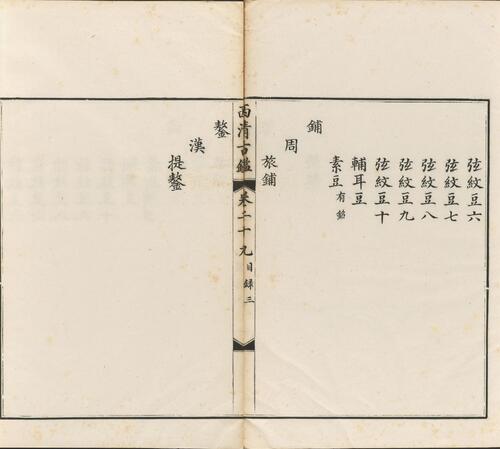 弦紋豆六
弦紋豆七
弦紋豆八
弦紋豆九
弦紋豆十
輔耳豆
素豆有銘
鋪
周
旅鋪
西清古鑑
卷二十九
目録三
鏊
漢
提鏊